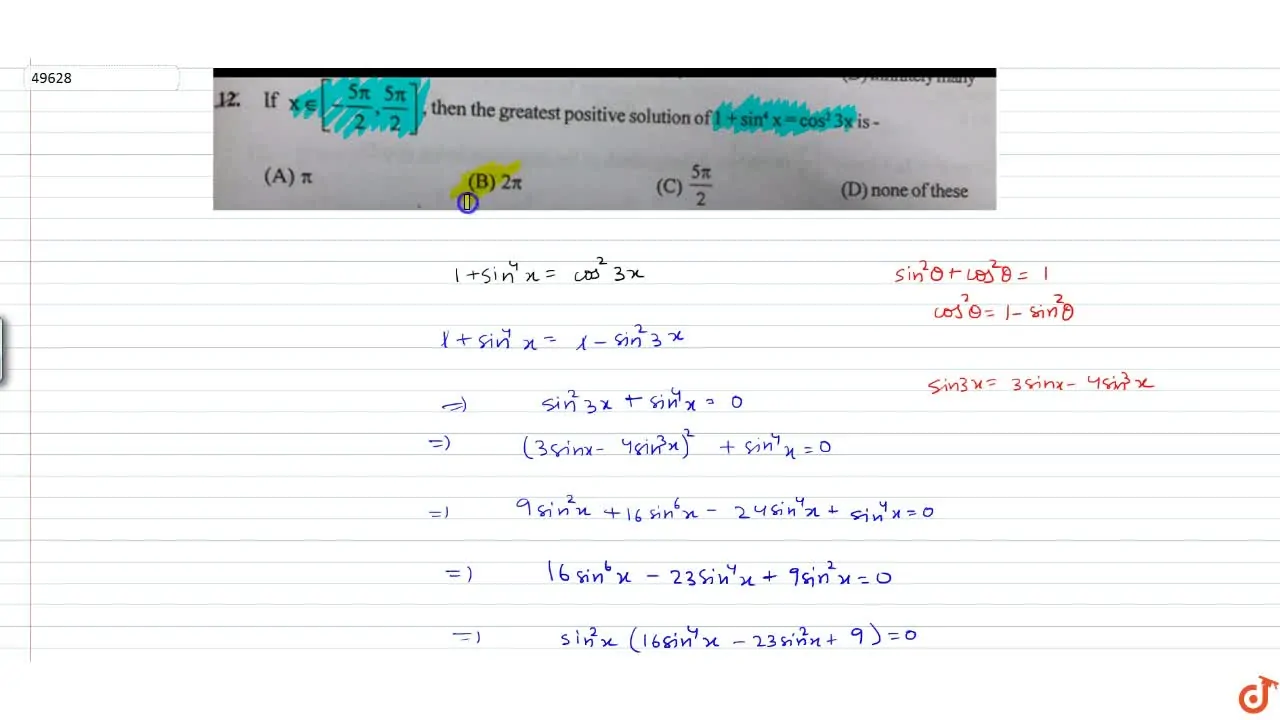 49628
(D) infinitely many
12. If x ∈ [−5π/2, 5π/2], then the greatest positive solution of 1 + sin⁴ x = cos² 3x is -
(A) π (B) 2π (C) 5π/2 (D) none of these
1 + sin⁴x = cos² 3x
sin²θ + cos²θ = 1
cos²θ = 1 − sin²θ
1 + sin⁴x = 1 − sin² 3x
sin3x = 3sinx − 4sin³x
=) sin² 3x + sin⁴x = 0
=) (3sinx − 4sin³x)² + sin⁴x = 0
=) 9sin²x + 16sin⁶x − 24sin⁴x + sin⁴x = 0
=) 16sin⁶x − 23sin⁴x + 9sin²x = 0
=) sin²x (16sin⁴x − 23sin²x + 9) = 0